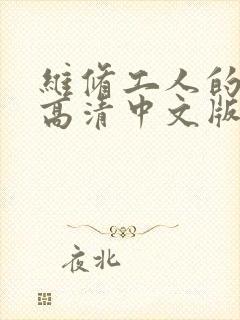 維修工人的
高清中文版
夜北